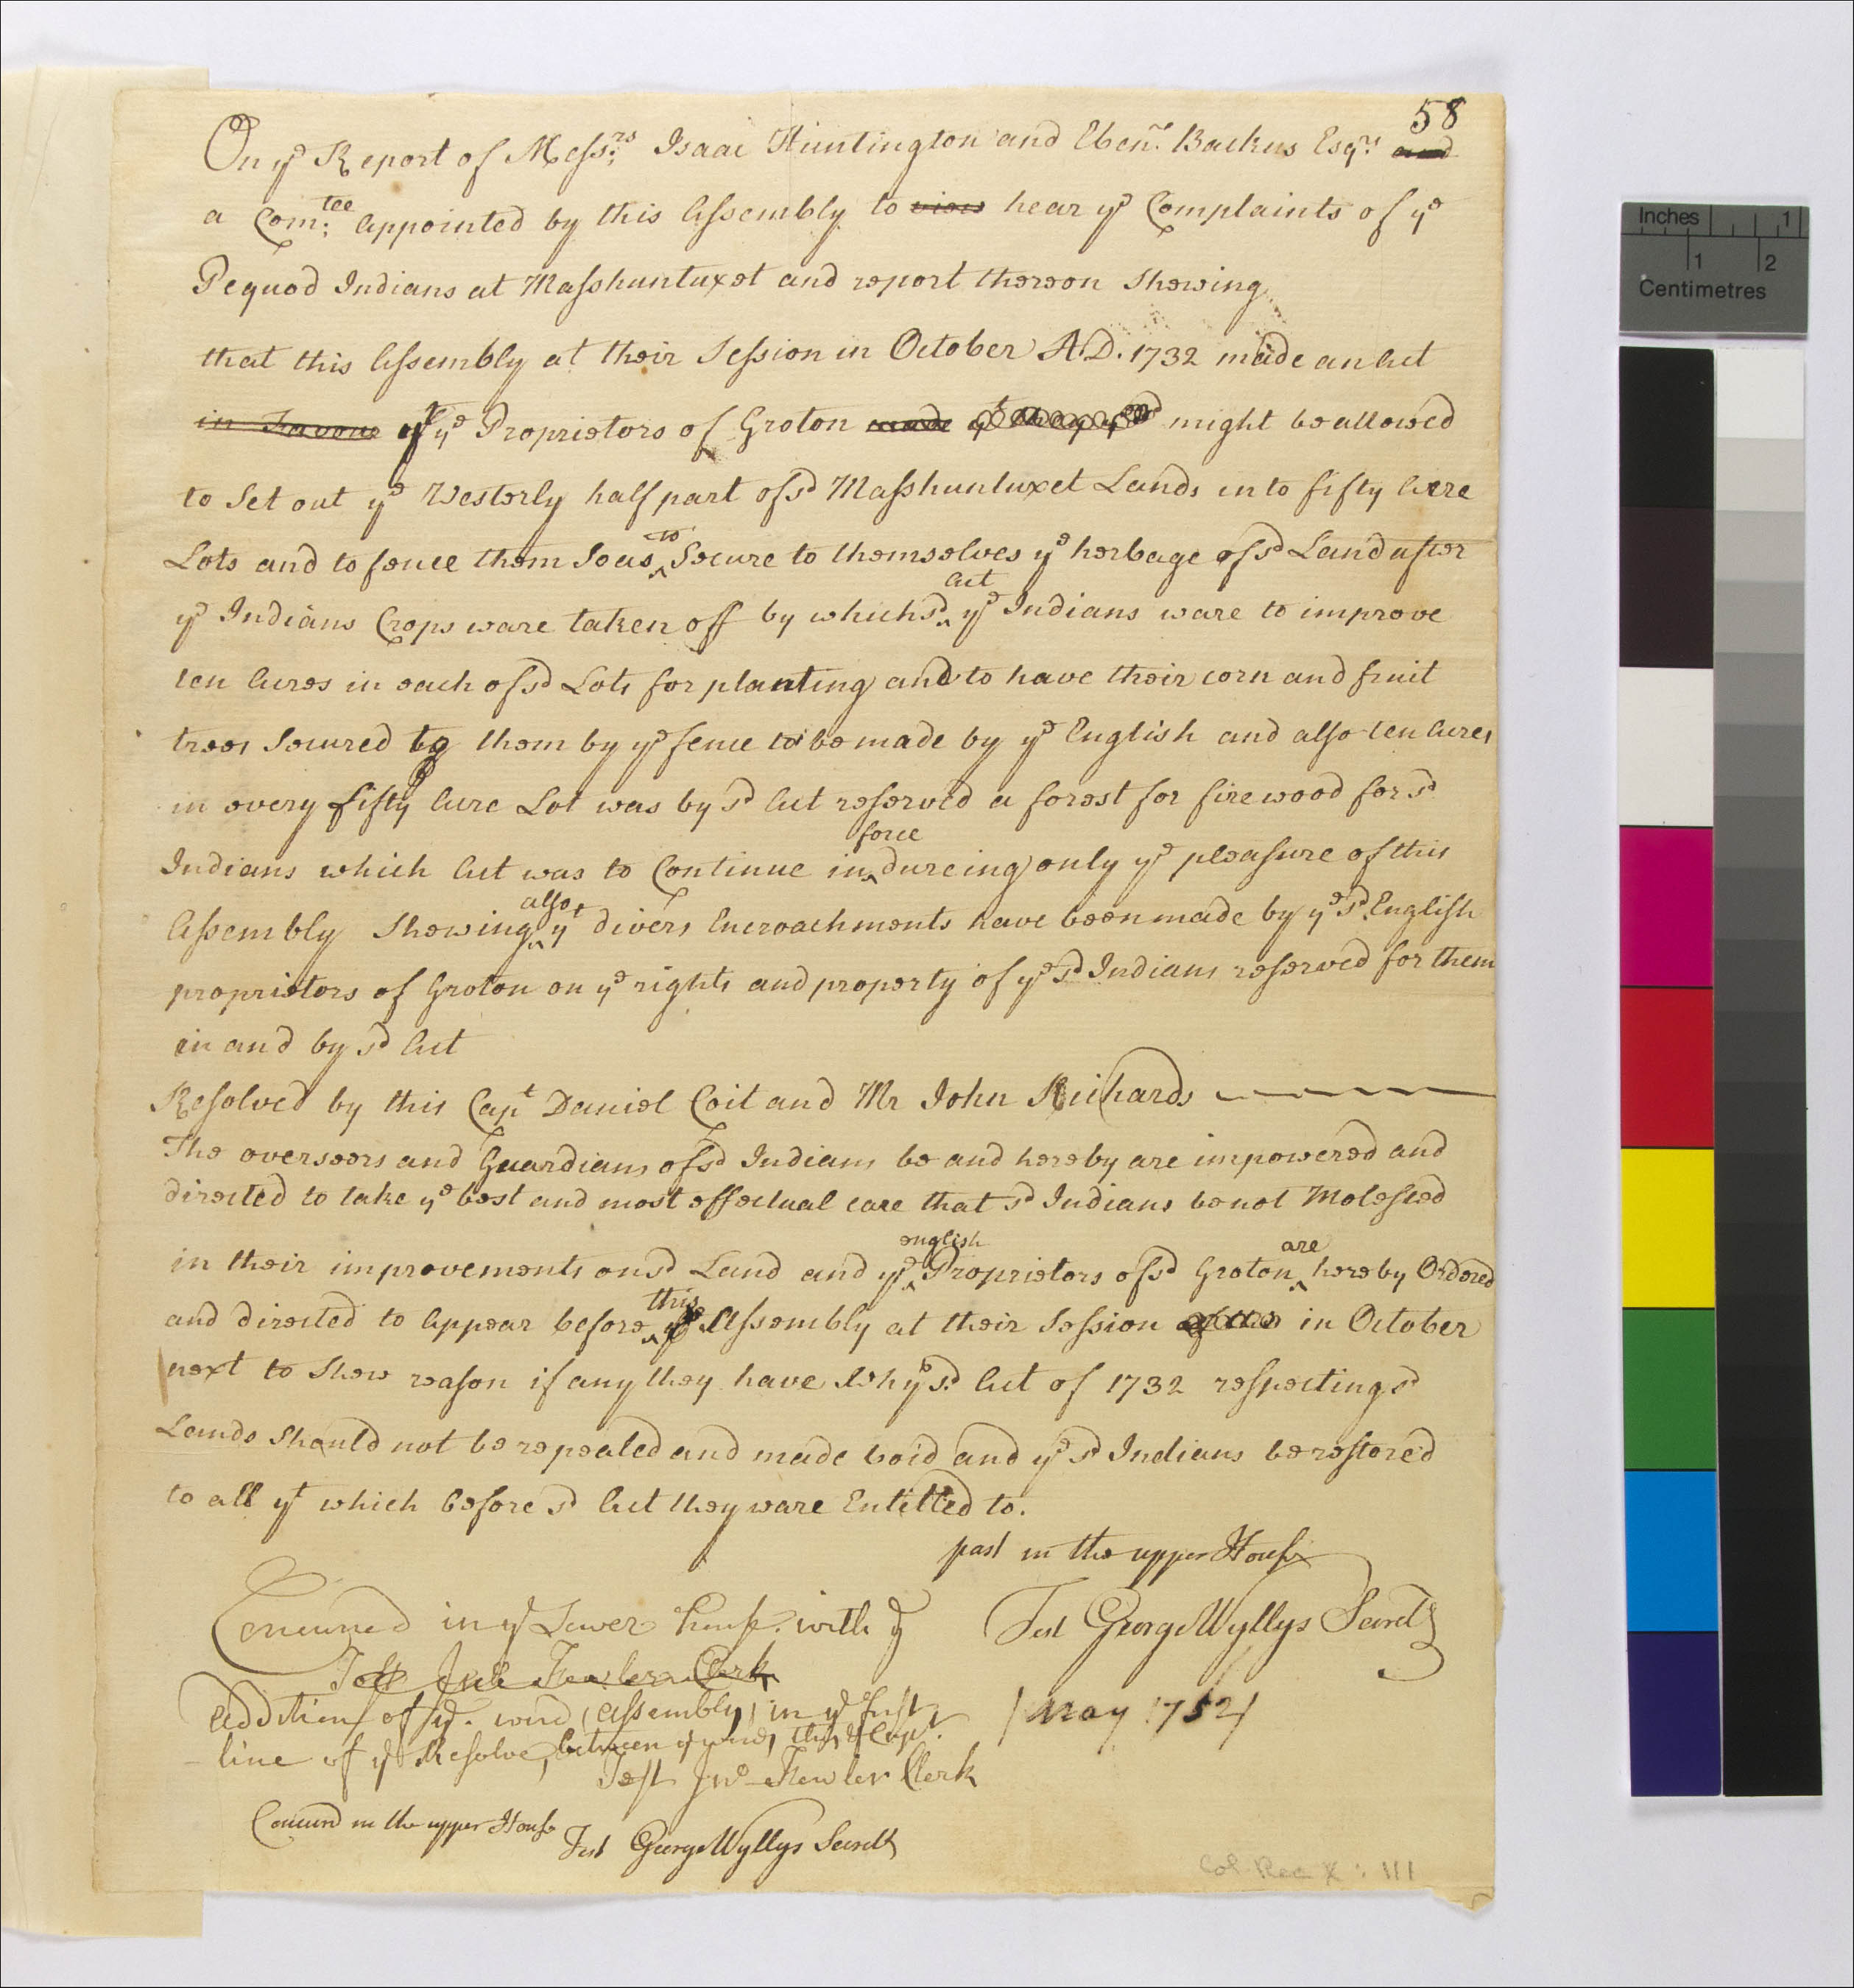 58
On ye Report of Messrs Isaac Huntington and Ebenr. Backus Esqrs and
a Comtee: Appointed by this Assembly to view hear ye Complaints of ye
Pequod Indians at Masshuntuxet and report thereon Shewing
that this Assembly at their Session in October A.D. 1732 made an Act
in Favour yt ye Proprietors of Groton made might be allowed
to Set out ye Westerly half part of sd Masshuntuxet Lands into fifty Acre
Lots and to fence them So as to Secure to themselves ye herbage of sd Land after
ye Indians Crops ware taken off by which sd Act ye Indians ware to improve
ten Acres in each of sd Lots for planting and to have their corn and fruit
trees Secured to them by ye fence to be made by ye English and also ten Acres
in every fifty Acre Lot was by sd Act reserved a forest for firewood for sd
Indians which Act was to Continue in force dureing only ye pleasure of this
Assembly Shewing also yt divers Encroachments have been made by ye sd English
proprietors of Groton on ye rights and property of ye sd Indians reserved for them
in and by sd Act
Resolved by this Capt Daniel Coit and Mr John Richards
The overseers and Guardians of sd Indians be and hereby are impowered and
directed to take ye best and most effectual care that sd Indians be not Molested
in their improvements on sd Land and ye english Proprietors of sd Groton are hereby Ordered
and directed to Appear before this Assembly at their Session in October
next to Shew reason if any they have Why sd Act of 1732 respecting sd
Lands Should not be repealed and made void and ye sd Indians be restored
to all yt which before sd Act they ware Entitled to.
past in the upper House
Test George Wyllys Secretr
Concurred in ye Lower house. with ye
Test Jno Fowler Clerk
Addition of ye. word, Assembly, in ye first
line of ye Resolve, between ye words this, & Capt.
Test Jno Fowler Clerk
/ May 1752 /
Concurd in the upper House
Test George Wyllys Secretr
Col. Rec X : 111
Inches 1
1 2
Centimetres